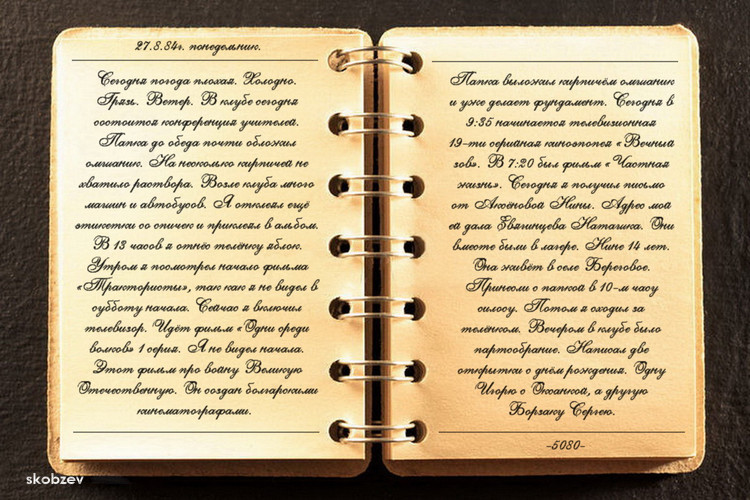 27.8.84г. понедельник.
Сегодня погода плохая. Холодно.
Грязь. Ветер. В клубе сегодня
состоится конференция учителей.
Папка до обеда почти обложил
омшаник. На несколько кирпичей не
хватило раствора. Возле клуба много
машин и автобусов. Я отклеил ещё
этикетки со спичек и приклеял в альбом.
В 13 часов я отнёс телёнку яблок.
Утром я посмотрел начало фильма
«Трактористы», так как я не видел в
субботу начала. Сейчас я включил
телевизор. Идёт фильм «Одни среди
волков» 1 серия. Я не видел начала.
Этот фильм про войну Великую
Отечественную. Он создан болгарскими
кинематографами.
Папка выложил кирпичём омшаник
и уже делает фундамент. Сегодня в
9:35 начинается телевизионная
19-ти серийная киноэпопея «Вечный
зов». В 7:20 был фильм «Частная
жизнь». Сегодня я получил письмо
от Аксёновой Нины. Адрес мой
ей дала Евягинцева Наташка. Они
вместе были в лагере. Нине 14 лет.
Она живёт в селе Береговое.
Принесли с папкой в 10-м часу
силосу. Потом я сходил за
телёнком. Вечером в клубе было
партсобрание. Написал две
открытки с днём рождения. Одну
Игорю с Оксанкой, а другую
Борзаку Сергею.
-5080-
skobzev